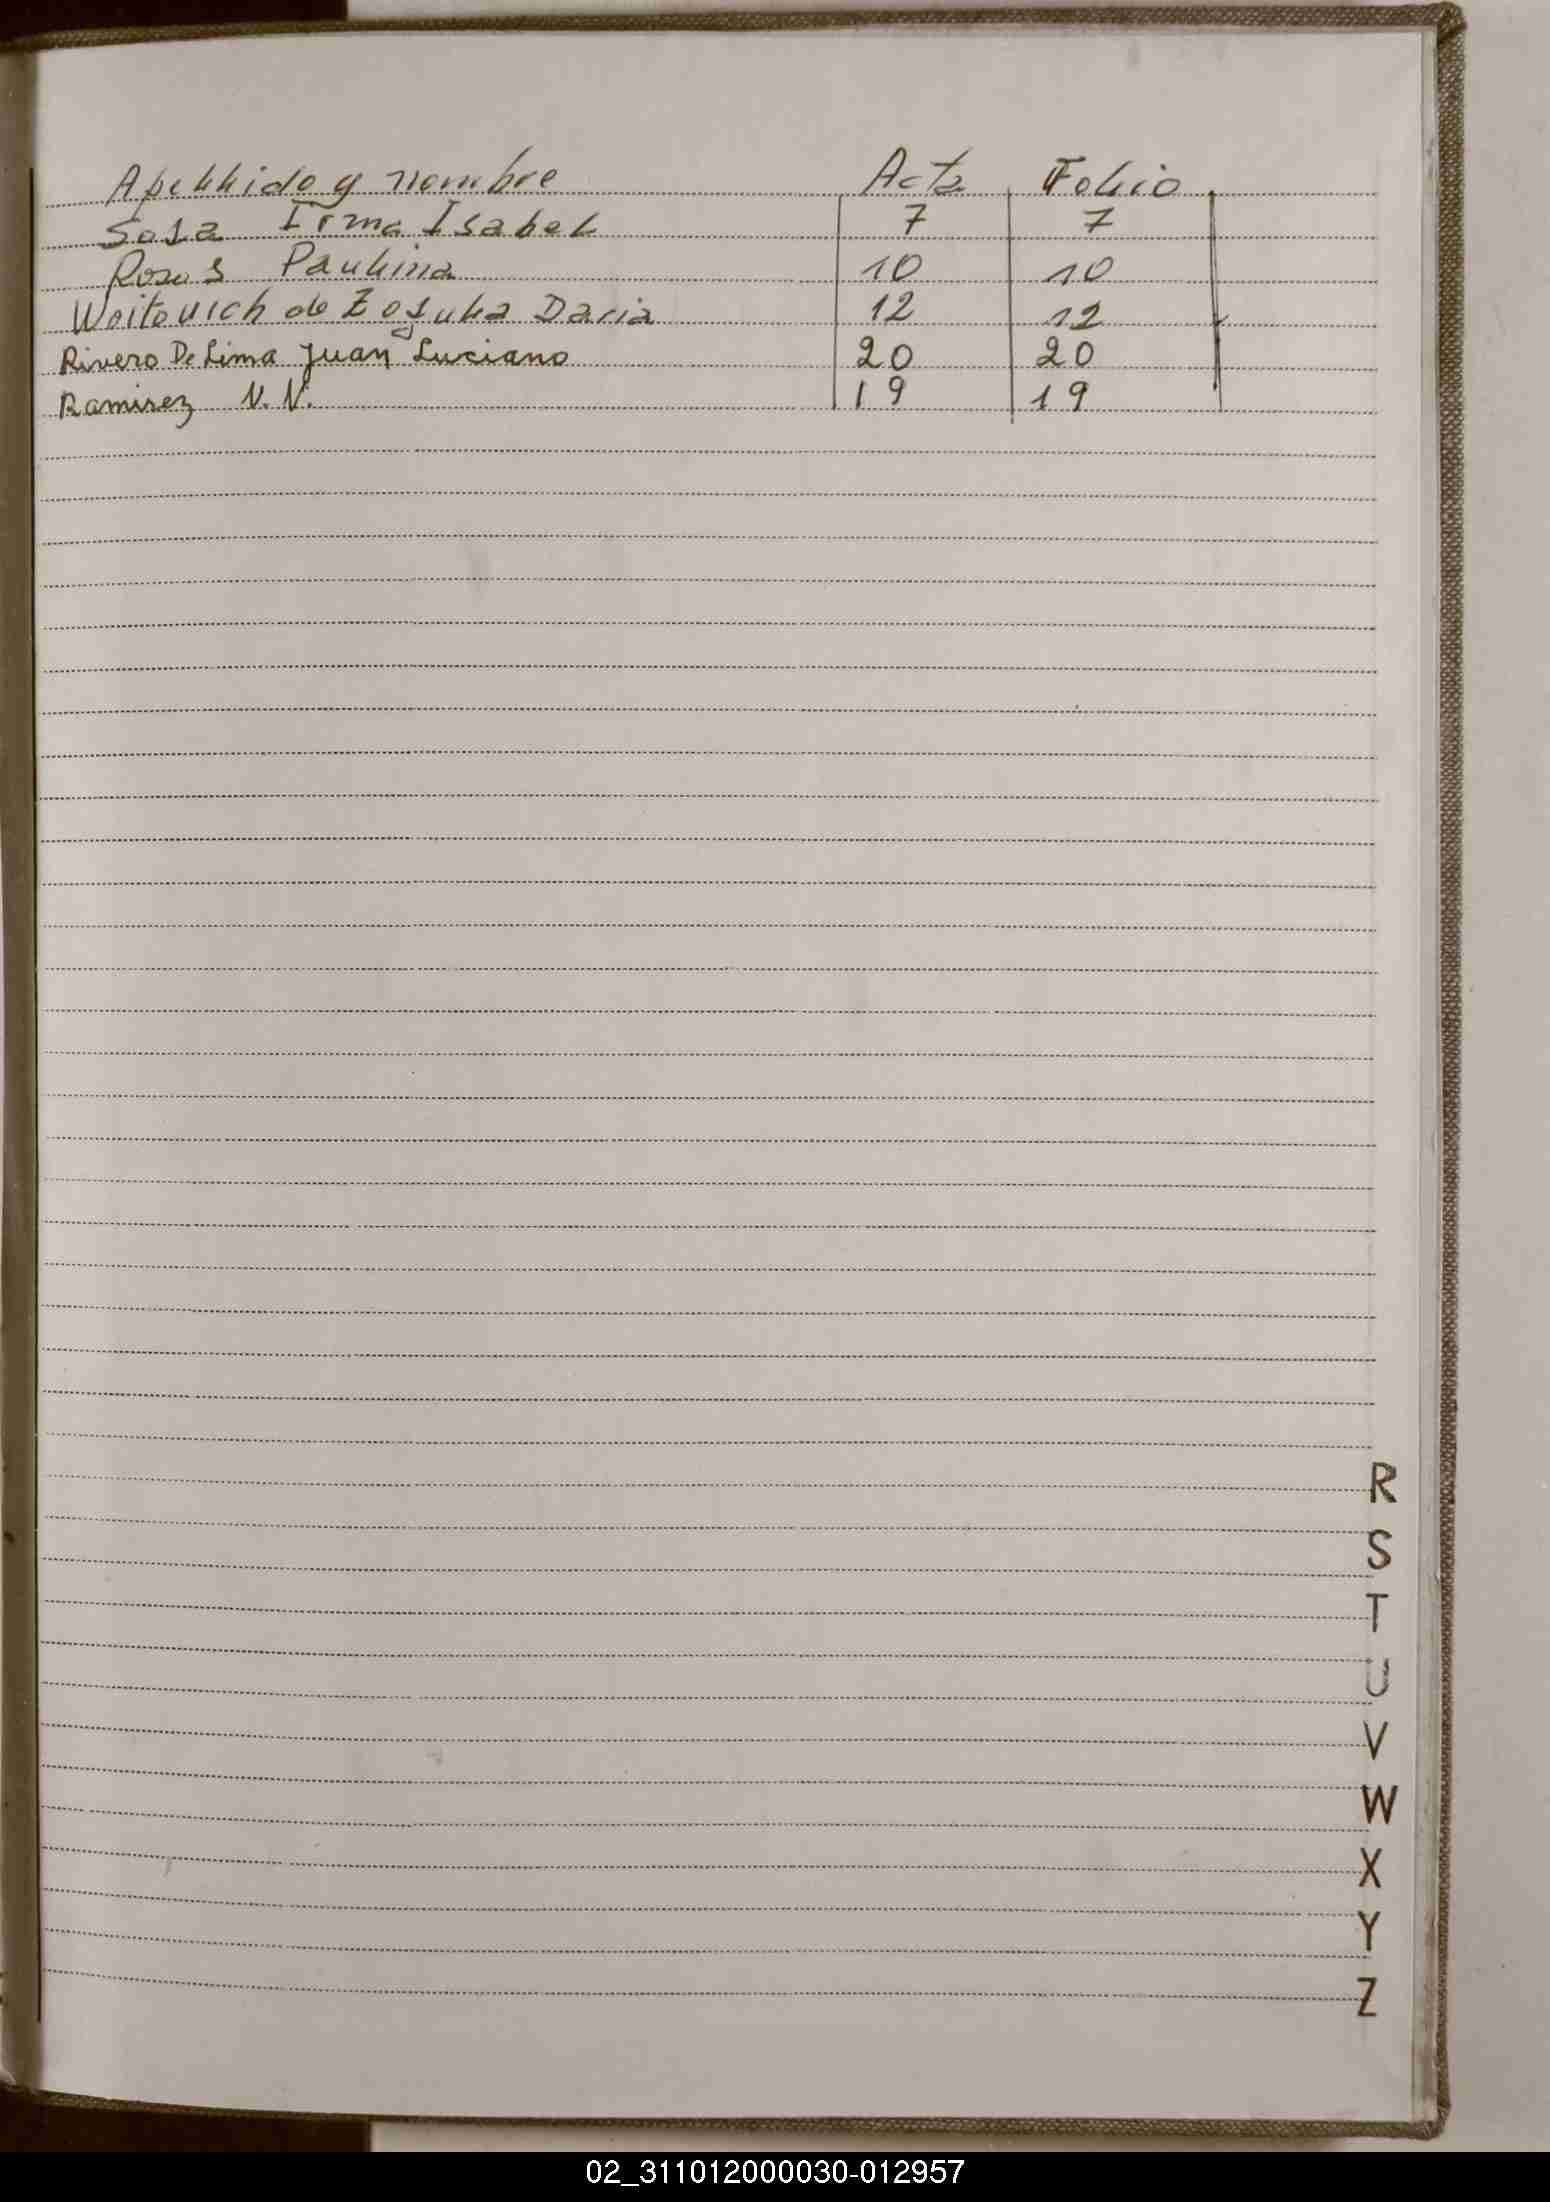 Apellido y nombre Acta Folio
Sosa Irma Isabel 7 7
Rosas Paulina 10 10
Woitovich de Zogulia Daria 12 12
Rivero De Lima Juan Luciano 20 20
Ramirez N.N. 19 19
R
S
T
U
V
W
X
Y
Z
02_311012000030-012957